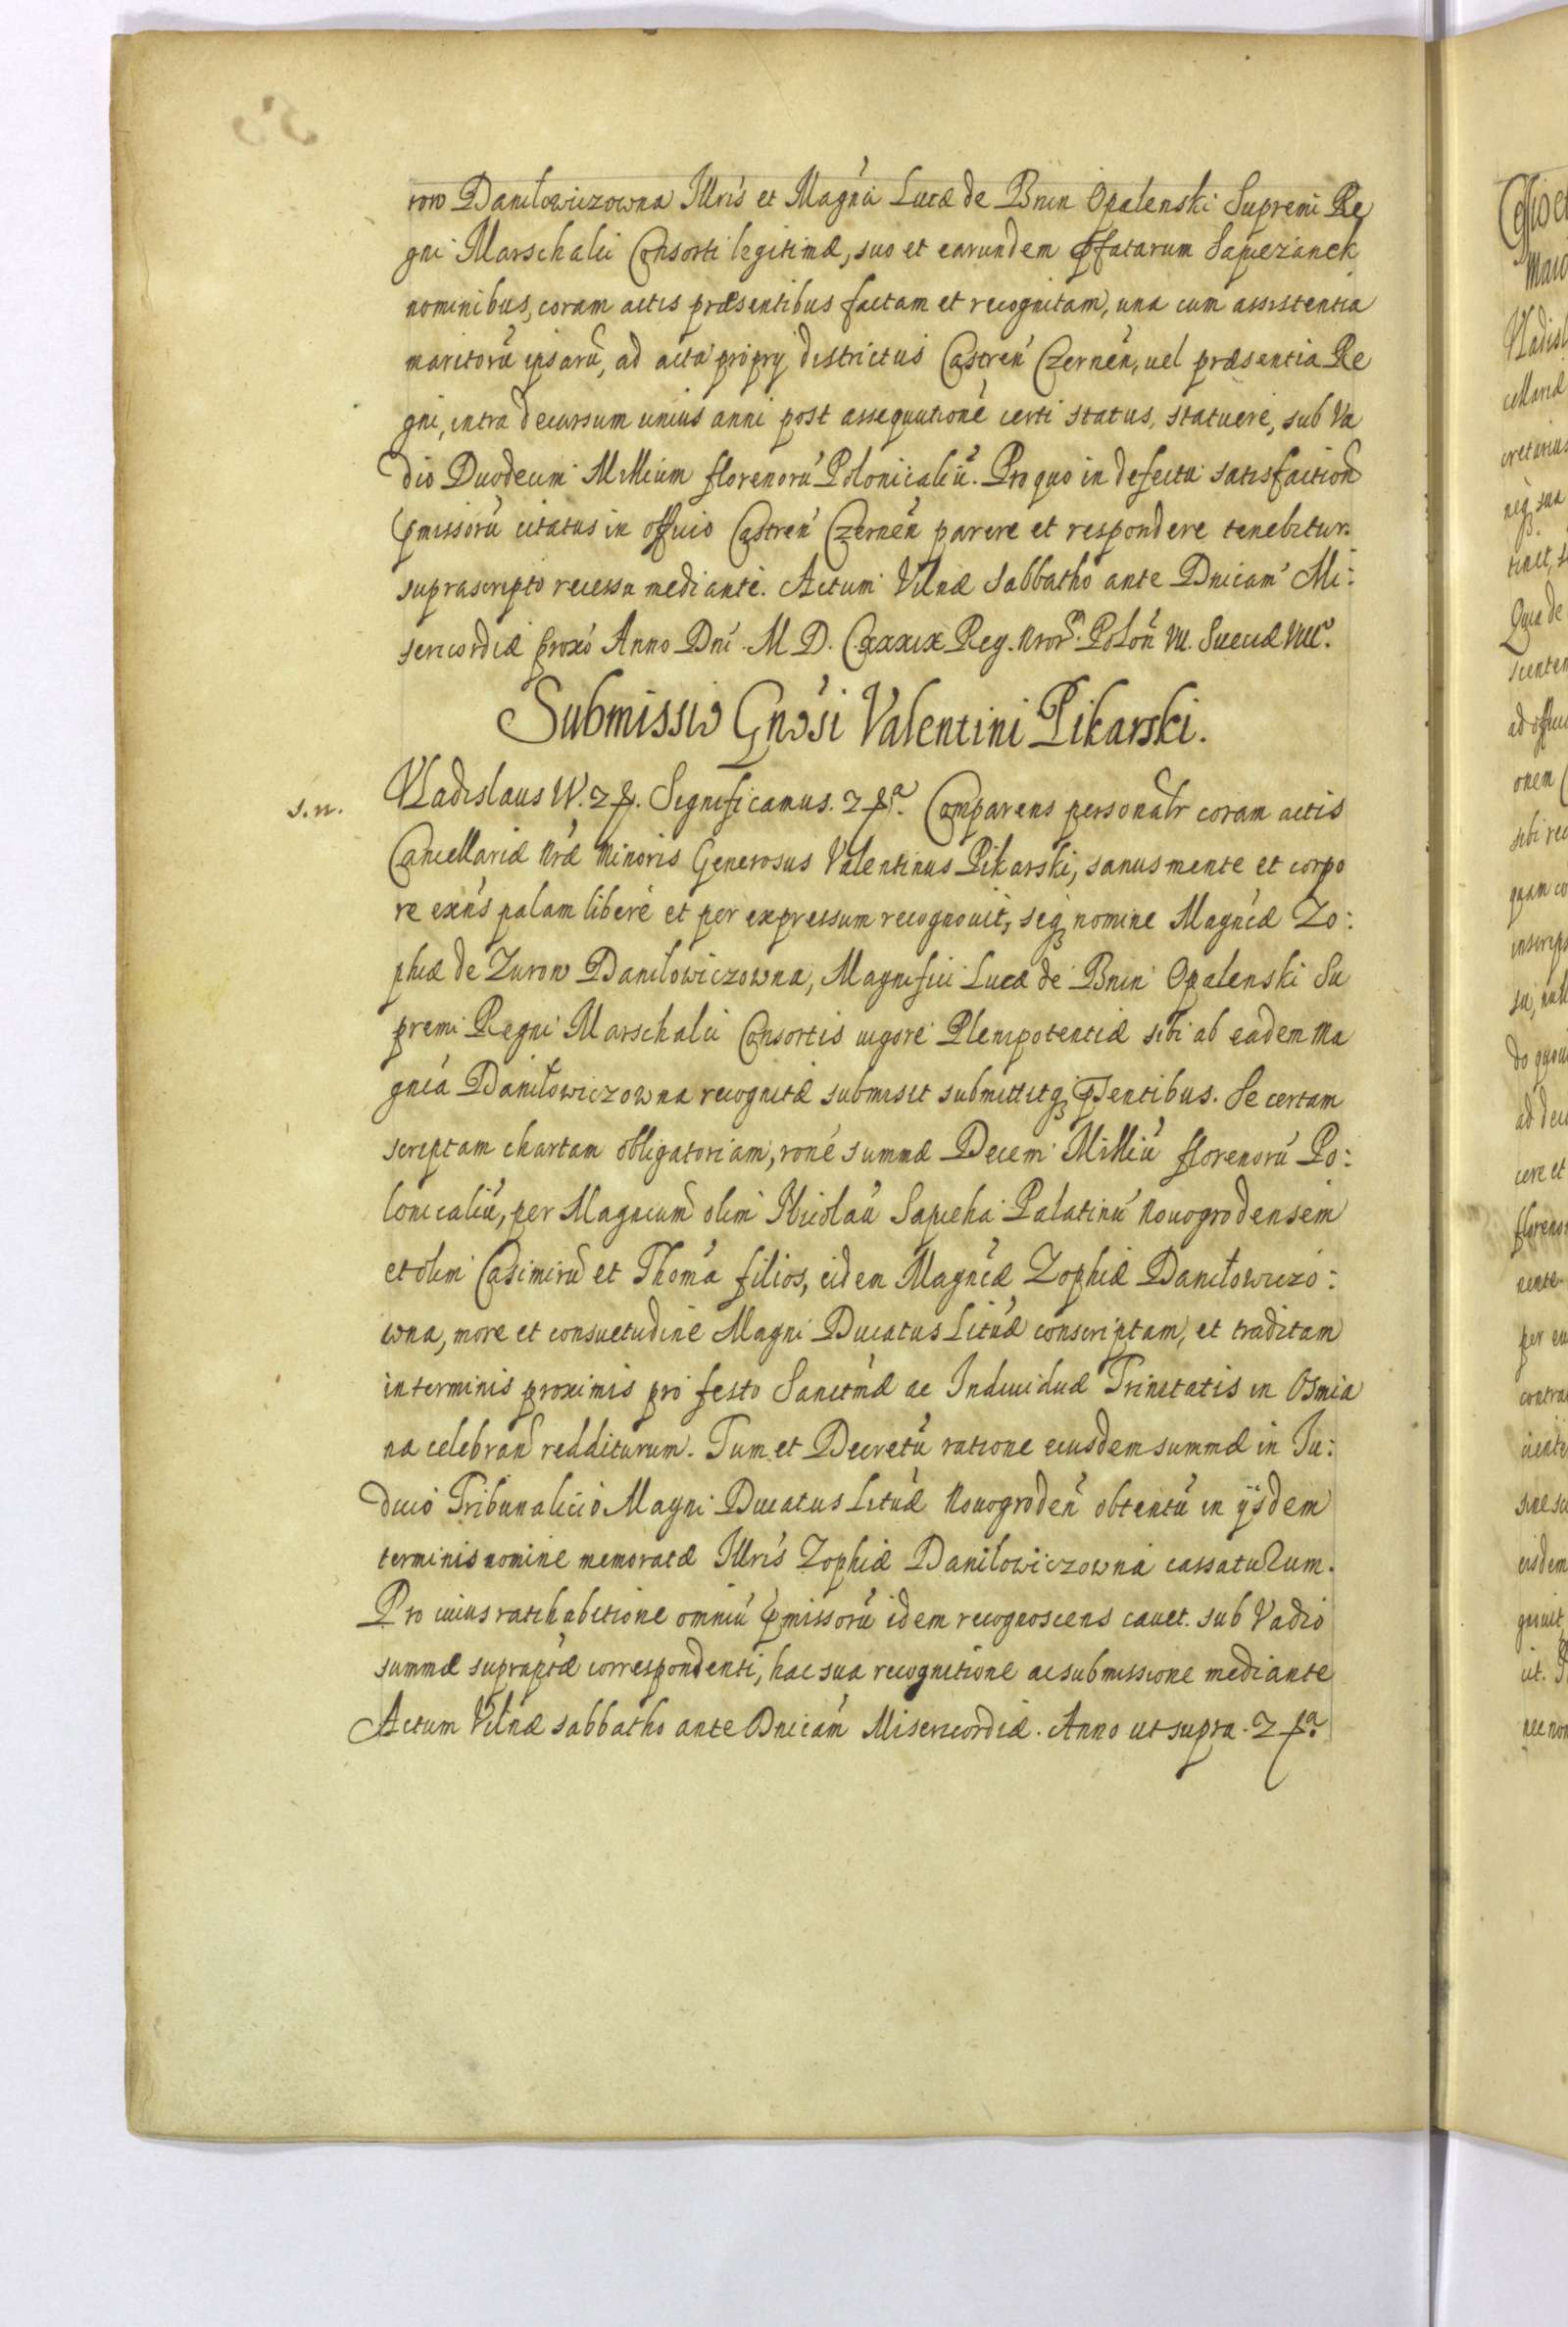 row Daniłowiczowna Illris et Magńi Lucæ de Bnin Opalenski Supremi Re
gni Marschalci Consorti legitimæ, suo et earundem p̄fatarum Sapiezanek
nominibus, coram actis præsentibus factam et recognitam, una cum assistentia
maritorū ipsarū, ad acta proprÿ districtus Castreń Czerneń, uel præsentia Re
gni, intra decursum unius anni post assequutionē certi status, statuere, sub Va
dio Duodecim Millium florenorū Polonicaliū. Pro quo in defectu satisfaction
p̄missorū citatus in officio Castreń Czerneń parere et respondere tenebitur.
suprascripto recessu mediante. Actum Vilnæ Sabbatho ante Dnicam Mi:
sericordiæ proxo Anno Dni M D. C.xxxix Reg. nror. Poloń VII. Sueciæ VIII.
Submissio Gnosi Valentini Pikarski.
s.n.
Vladislaus IV. 2 p. Significamus. 2 pa. Comparens personalr coram actis
Cancellariæ nræ Minoris Generosus Valentinus Pikarski, sanus mente et corpo
re exńs palam liberè et per expressum recognouit, seq nomine Magncæ Zo:
phiæ de Zurow Daniłowiczowna, Magnifici Lucæ de Bnin Opalenski Su
premi Regni Marschalci Consortis uigore Plenipotentiæ sibi ab eadem Ma
gnca Daniłowiczowna recognitæ submisit submittitq p̄sentibus. Se certam
scriptam chartam obligatoriam, rone summæ Decem Milliū florenorū Po:
lonicaliū, per Magncum olim Nicolaū Sapieha Palatinū Nouogrodensem
et olim Casimirū et Thomā filios, eidem Magncæ Zophiæ Daniłowiczo:
wna, more et consuetudine Magni Ducatus Lituæ conscriptam, et traditam
in terminis proximis pro festo Sanctmæ ac Indiuiduæ Trinitatis in Osmia
na celebrand redditurum. Tum et Decretū ratione eiusdem summæ in Iu:
dicio Tribunalicio Magni Ducatus Lituæ Nouogrodeń obtentū in ÿsdem
terminis nomine memoratæ Illris Zophiæ Daniłowiczowna cassaturum.
Pro cuius ratihabitione omniū p̄missorū idem recognoscens cauet. sub Vadio
summæ supraptæ correspondenti, hac sua recognitione ac submissione mediante
Actum Vilnæ sabbatho ante Dnicam Misericordiæ. Anno ut supra. 2 pa.